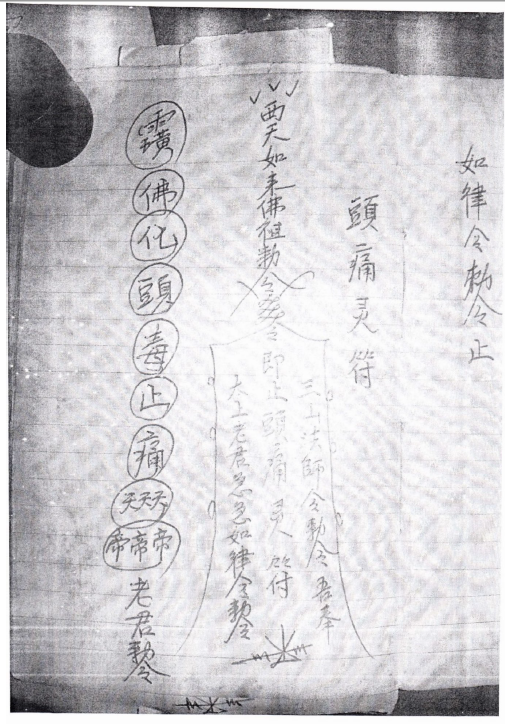 如律令勅令止
頭痛灵符
三山法師令勅令吾奉
西天如来佛祖勅令
即止頭痛灵符
太上老君急急如律令勅令
佛化頭毒止痛天天天帝帝帝老君勅令